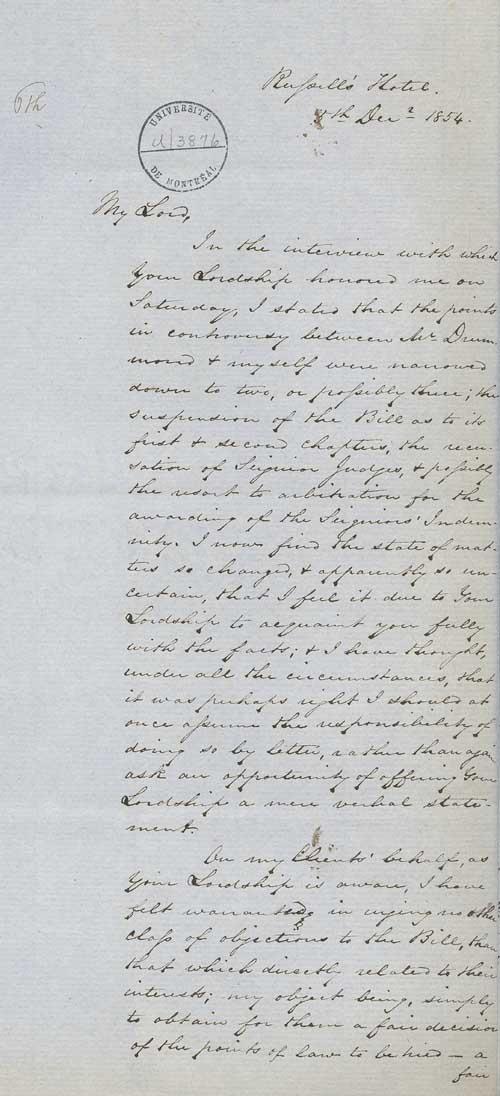 6th
Russell's Hotel.
5th Decr 1854.
UNIVERSITÉ
U/3876
DE MONTRÉAL
My Lord,
In the interview with which
Your Lordship honored me on
Saturday, I stated that the points
in controversy between Mr Drum-
mond & myself were narrowed
down to two, or possibly three; the
suspension of the Bill as to its
first & second chapters, the recu-
sation of Seignior Judges, & possibly
the resort to arbitration for the
awarding of the Seigniors' Indem-
nity. I now find the state of mat-
ters so changed, & apparently so un-
certain, that I feel it due to Your
Lordship to acquaint you fully
with the facts; & I have thought,
under all the circumstances, that
it was perhaps right I should at
once assume the responsibility of
doing so by letter, rather than again
ask an opportunity of offering Your
Lordship a mere verbal state-
ment.
On my Clients' behalf, as
Your Lordship is aware, I have
felt warranted in urging no other
class of objections to the Bill, than
that which directly related to their
interests; my object being, simply
to obtain for them a fair decision
of the points of law to be tried — a
fair